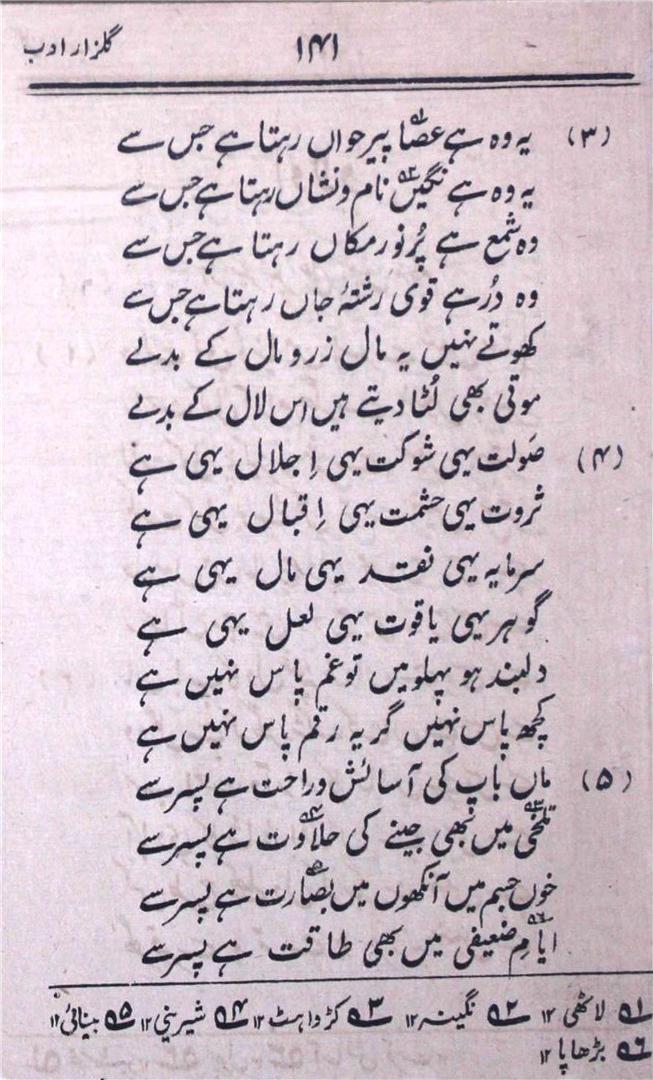 گلزار ادب ۱۴۱
(۳) یہ وہ ہے عصا۱؎ پیر جواں رہتا ہے جس سے
یہ وہ ہے نگیں۲؎ نام و نشاں رہتا ہے جس سے
وہ شمع ہے پُر نور مکاں رہتا ہے جس سے
وہ دُر ہے قوی رشتۂ جاں رہتا ہے جس سے
کھوتے نہیں یہ مال زر و مال کے بدلے
موتی بھی لُٹا دیتے ہیں اس لال کے بدلے
(۴) صَولت یہی شوکت یہی اِجلال یہی ہے
ثروت یہی حشمت یہی اِقبال یہی ہے
سرمایہ یہی نقد یہی مال یہی ہے
گوہر یہی یاقوت یہی لعل یہی ہے
دلبند ہو پہلو میں تو غم پاس نہیں ہے
کچھ پاس نہیں گر یہ رقم پاس نہیں ہے
(۵) ماں باپ کی آسائش و راحت ہے پسر سے
تلخی۳؎ میں بھی جینے کی حلاوت۴؎ ہے پسر سے
خوں جسم میں آنکھوں میں بصارت۵؎ ہے پسر سے
ایامِ ضعیفی۶؎ میں بھی طاقت ہے پسر سے
۱؎ لاٹھی ۱۲ ۲؎ نگینہ ۱۲ ۳؎ کڑواہٹ ۱۲ ۴؎ شیرینی ۱۲ ۵؎ بینائی ۱۲
۶؎ بڑھاپا ۱۲